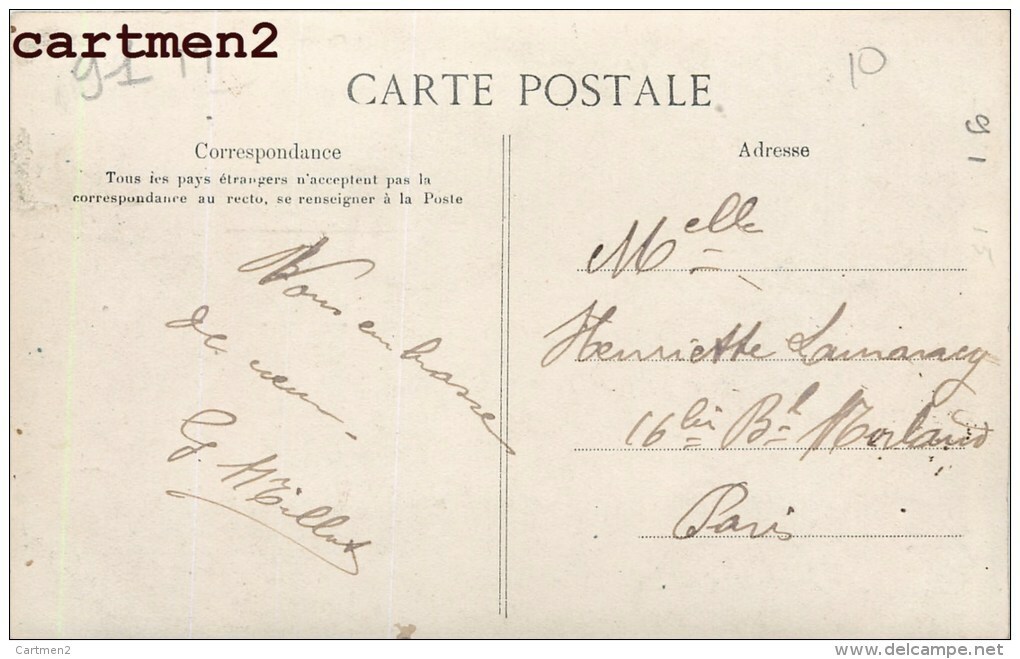 cartmen2
91
10
CARTE POSTALE
91
15
Correspondance
Tous les pays étrangers n'acceptent pas la
correspondance au recto, se renseigner à la Poste
Vous embrasse
de cœur
G. Millet
Adresse
Melle
Henriette Lamaracq
16 bis Bd Morland
Paris
Cartmen2
http://www.delcampe.net